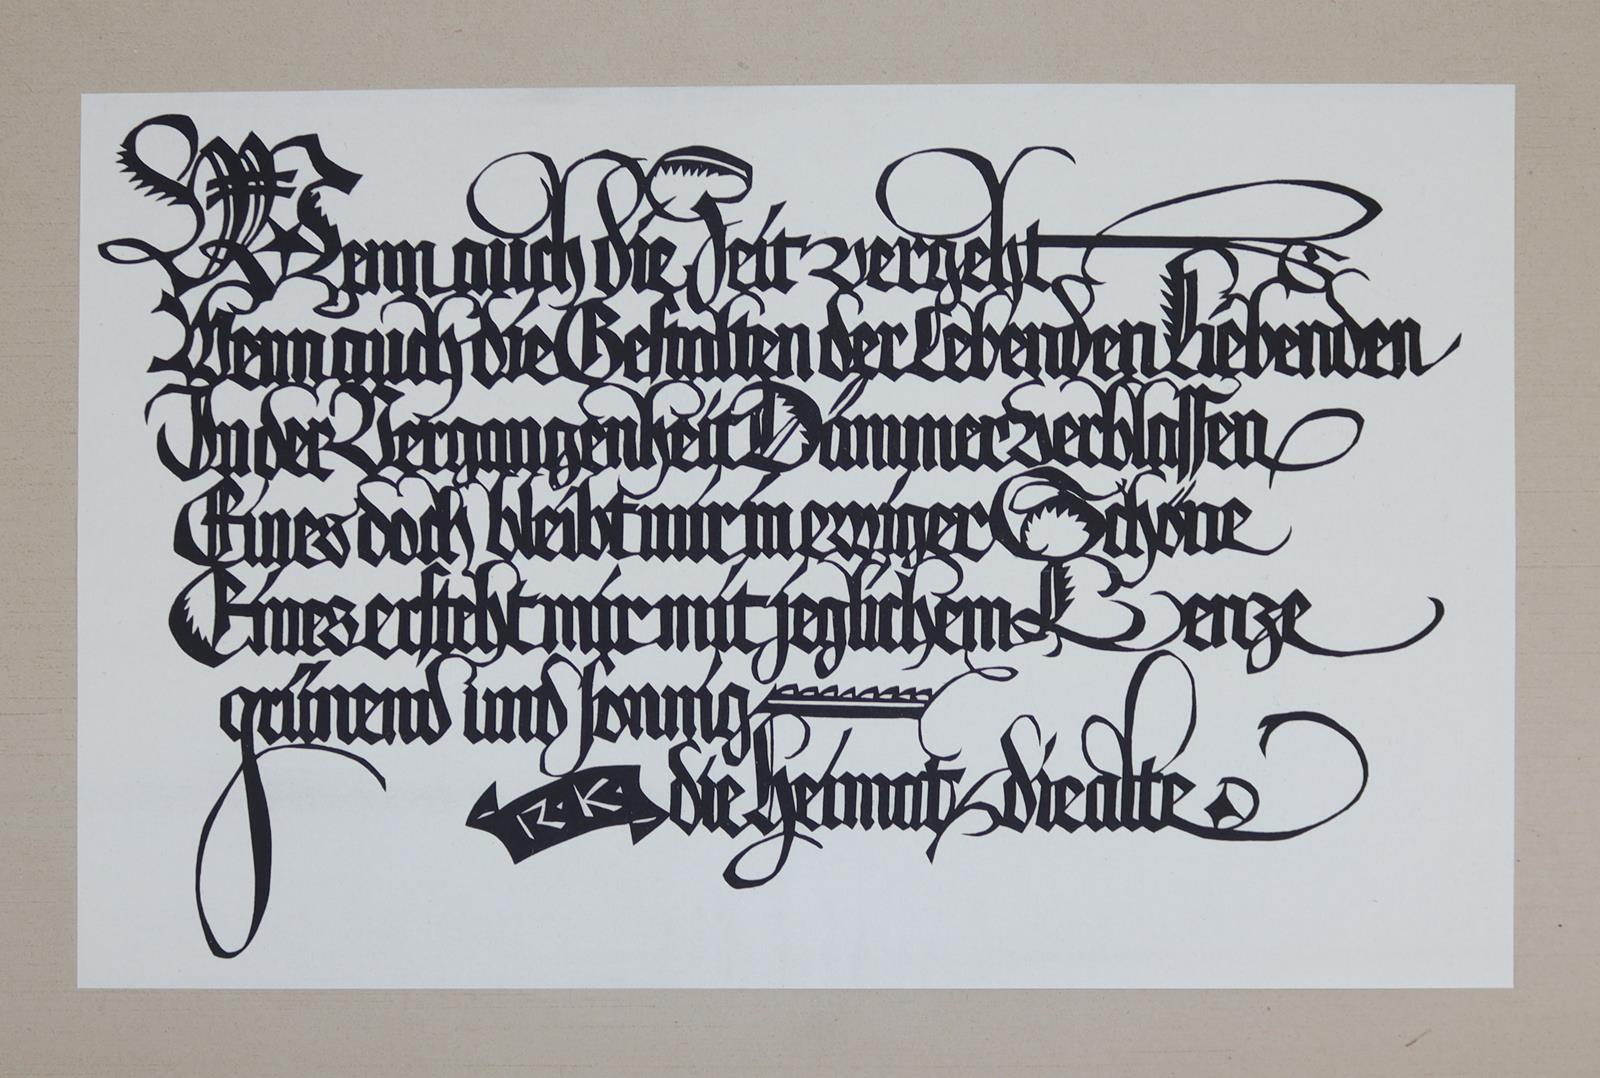 Wenn auch die Zeit vergeht
Wenn auch die Gestalten der Lebenden Liebenden
In der Vergangenheit Dämmer verblassen
Eines doch bleibt mir in ewiger Schöne
Eines ersteht mir mit jeglichem Lenze
grünend und sonnig
die Heimat, die alte
R.K.